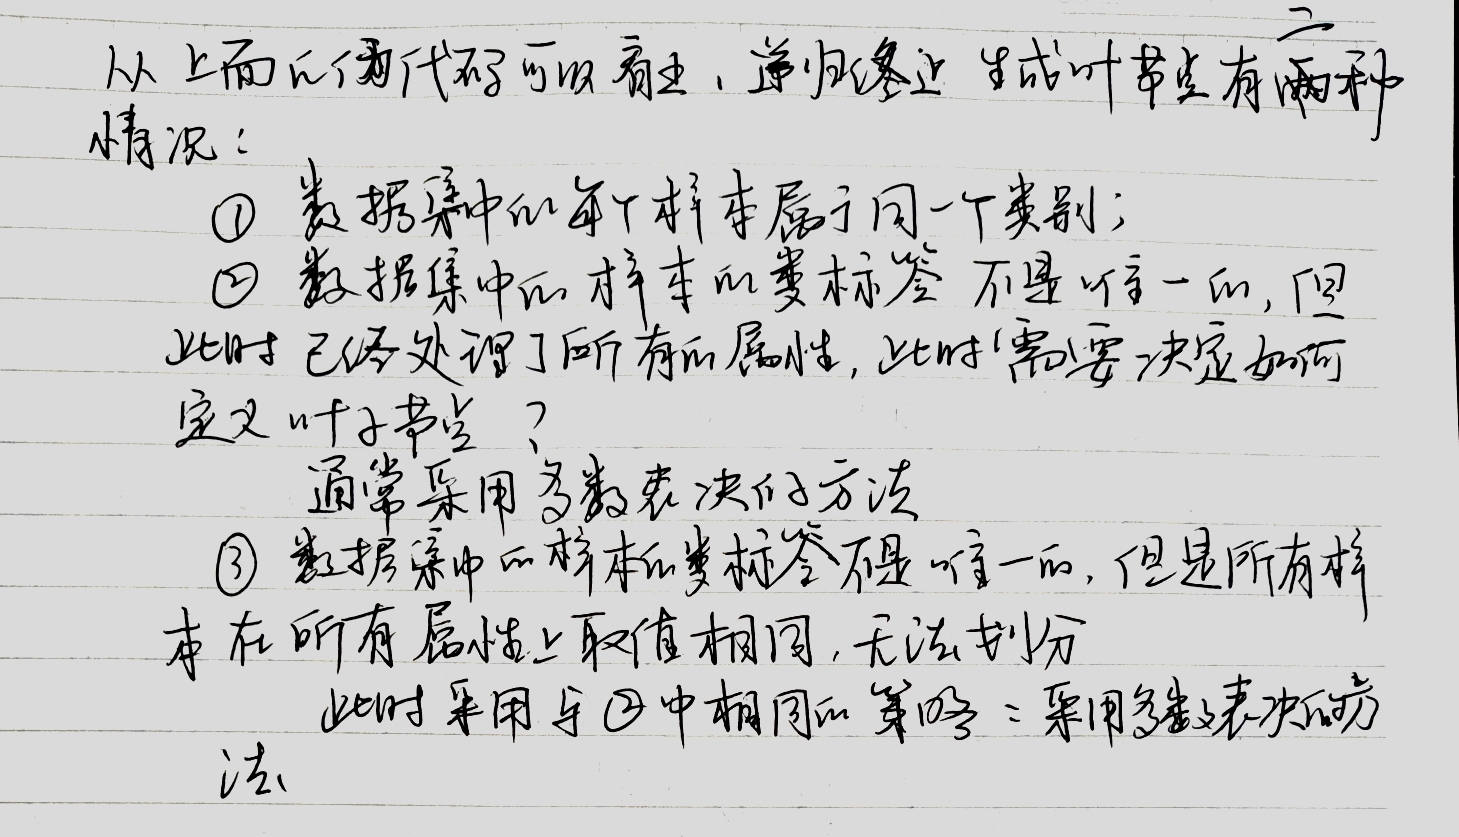 从上面的伪代码可以看出，递归终止生成叶节点有三种
情况：
① 数据集中的每个样本属于同一个类别；
② 数据集中的样本的类标签不是唯一的，但
此时已经处理了所有的属性，此时需要决定如何
定义叶子节点？
通常采用多数表决的方法
③ 数据集中的样本的类标签不是唯一的，但是所有样
本在所有属性上取值相同，无法划分
此时采用与②中相同的策略：采用多数表决的方
法